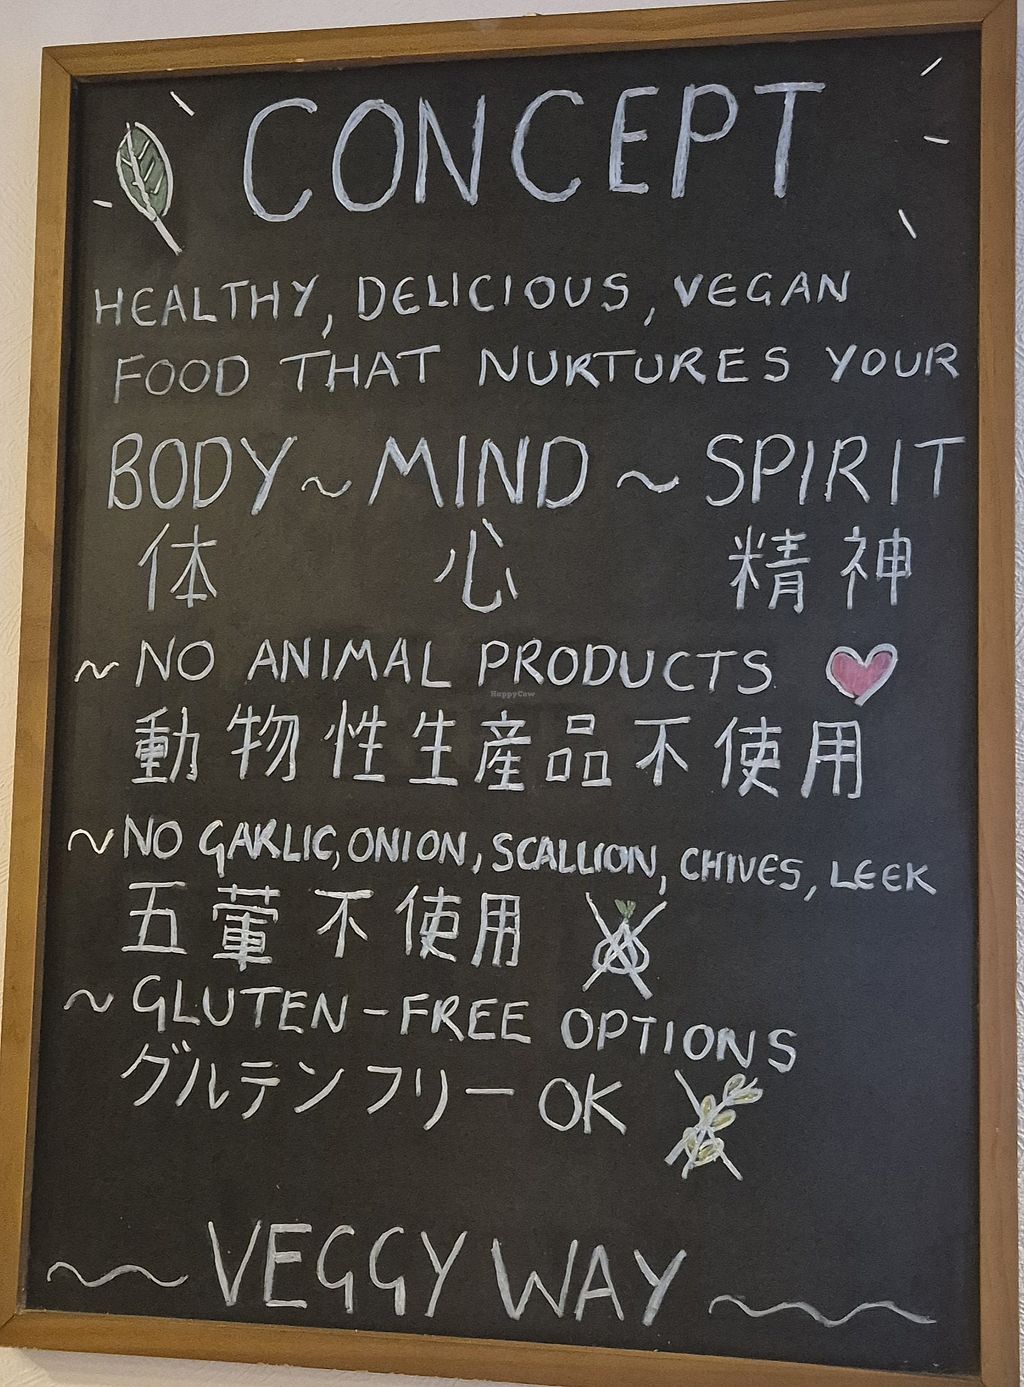 CONCEPT
HEALTHY, DELICIOUS, VEGAN
FOOD THAT NURTURES YOUR
BODY ~ MIND ~ SPIRIT
体 心 精神
~ NO ANIMAL PRODUCTS
HappyCow
動物性生産品不使用
~ NO GARLIC, ONION, SCALLION, CHIVES, LEEK
五葷不使用
~ GLUTEN-FREE OPTIONS
グルテンフリーOK
VEGGY WAY